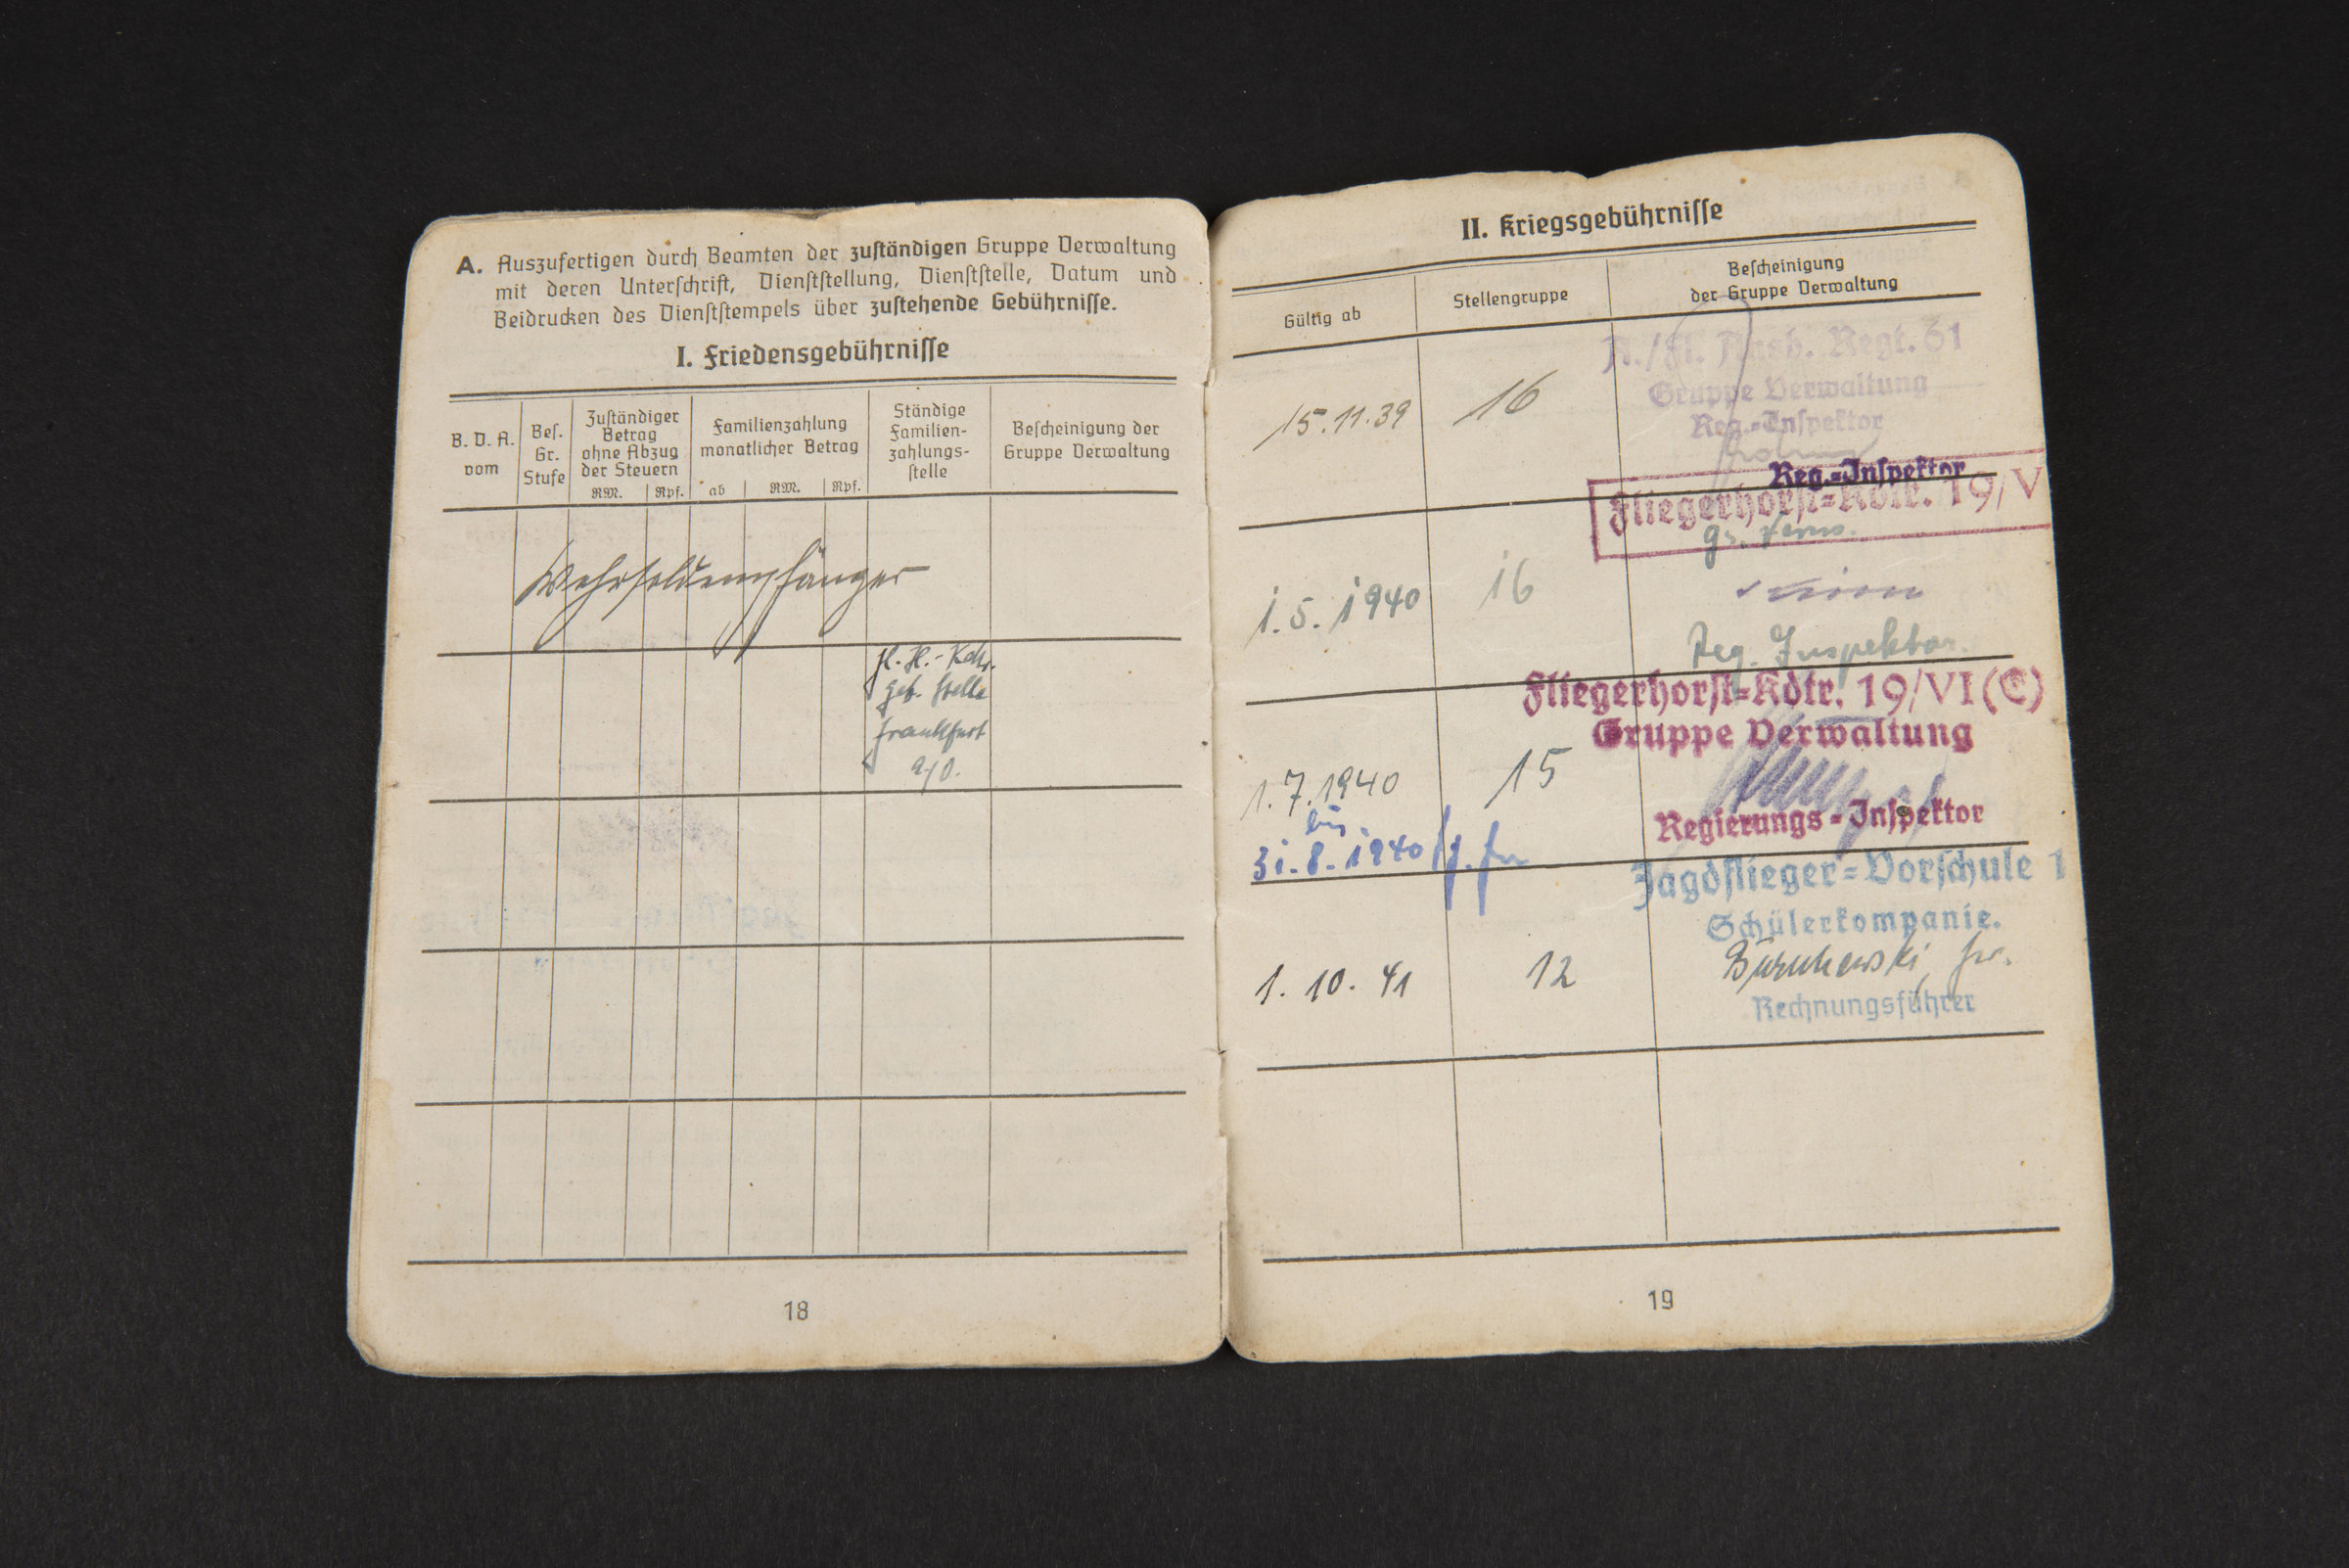 A. Auszufertigen durch Beamten der zuständigen Gruppe Verwaltung
mit deren Unterschrift, Dienststellung, Dienststelle, Datum und
Beidrucken des Dienststempels über zustehende Gebührnisse.
I. Friedensgebührnisse
B. D. A.
vom
Bes.
Gr.
Stufe
Zuständiger
Betrag
ohne Abzug
der Steuern
RM. Rpf.
Familienzahlung
monatlicher Betrag
ab RM. Rpf.
Ständige
Familien-
zahlungs-
stelle
Bescheinigung der
Gruppe Verwaltung
Wehrsoldempfänger
Fl. H.-Kdtr.
Geb. Stelle
Frankfurt
a/O.
18
II. Kriegsgebührnisse
Gültig ab
Stellengruppe
Bescheinigung
der Gruppe Verwaltung
15.11.39
16
Regt. 61
Gruppe Verwaltung
Reg.-Inspektor
Reg.-Inspektor
Fliegerhorst-Kdtr. 19/V
1.5.1940
16
Reg. Inspektor
Fliegerhorst-Kdtr. 19/VI (E)
Gruppe Verwaltung
1.7.1940
15
bis
31.8.1940
Regierungs-Inspektor
Jagdflieger-Vorschule 1
Schülerkompanie.
1.10.41
12
Rechnungsführer
19